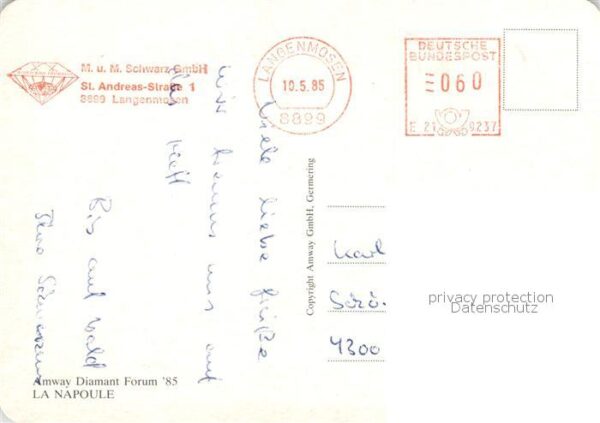 M. u. M. Schwarz GmbH
St. Andreas-Straße 1
8899 Langenmosen
LANGENMOSEN
10.5.85
8899
DEUTSCHE
BUNDESPOST
060
E 21 9237
Viele liebe Grüße
Wir freuen uns auf
Bis auf bald
Copyright Amway GmbH, Germering
Karl
4300
privacy protection
Datenschutz
Amway Diamant Forum '85
LA NAPOULE